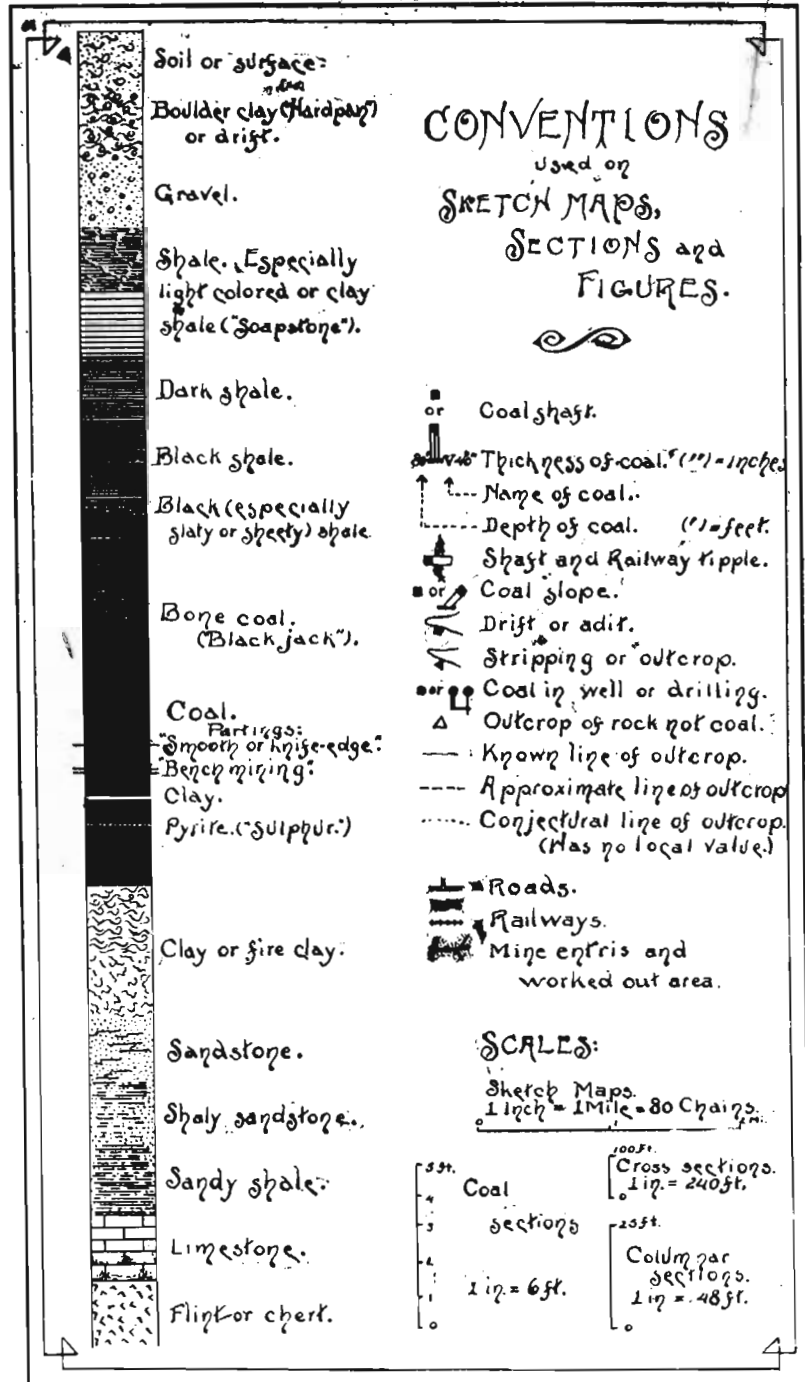 Soil or surface.
Boulder clay ("Hardpan")
or drift.
Gravel.
Shale. Especially
light colored or clay
shale ("Soapstone").
Dark shale.
Black shale.
Black (especially
slaty or sheety) shale.
Bone coal.
("Black jack").
Coal.
Partings:
"Smooth or knife-edge".
"Bench mining".
Clay.
Pyrite. ("Sulphur.")
Clay or fire clay.
Sandstone.
Shaly sandstone.
Sandy shale.
Limestone.
Flint or chert.
CONVENTIONS
used on
SKETCH MAPS,
SECTIONS and
FIGURES.
or Coal shaft.
Thickness of coal. (") = inches
Name of coal.
Depth of coal. (') = feet.
Shaft and Railway tipple.
or Coal slope.
Drift or adit.
Stripping or outcrop.
or Coal in well or drilling.
Outcrop of rock not coal.
Known line of outcrop.
Approximate line of outcrop
Conjectural line of outcrop.
(Has no local value.)
Roads.
Railways.
Mine entris and
worked out area.
SCALES:
Sketch Maps.
1 inch = 1 Mile = 80 Chains.
0 1 Mi.
5 ft.
4
3
2
1
0
Coal
sections
1 in = 6 ft.
100 Ft.
Cross sections.
1 in. = 240 ft.
0
25 ft.
Columnar
sections.
1 in = 48 ft.
0